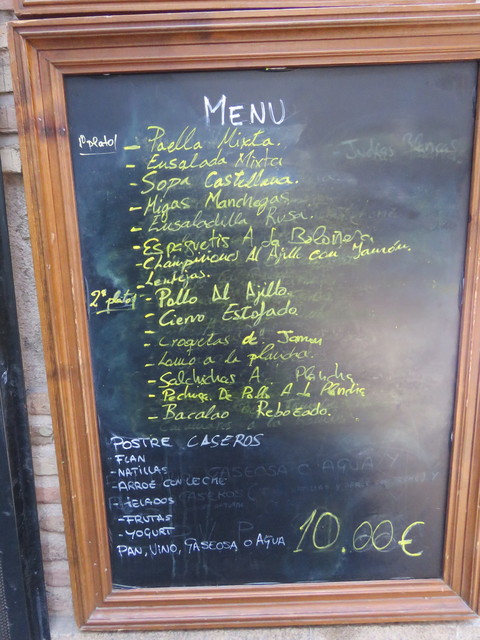 MENU
1º plato/
- Paella Mixta.
Judias Blancas
- Ensalada Mixta
- Sopa Castellana.
- Migas Manchegas
- Ensaladilla Rusa.
- Espaguetis A La Boloñesa
- Champiñones Al Ajillo con Jamón.
- Lentejas.
2º plato/
- Pollo Al Ajillo.
- Ciervo Estofado.
- Croquetas de Jamon
- Lomo a la plancha.
- Salchichas A Plancha
- Pechuga De Pollo A La Plancha
- Bacalao Rebozado.
POSTRE CASEROS
- FLAN
- NATILLAS
- ARROZ CON LECHE
- HELADOS
- FRUTAS
- YOGURT
PAN, VINO, GASEOSA O AGUA
10.00€